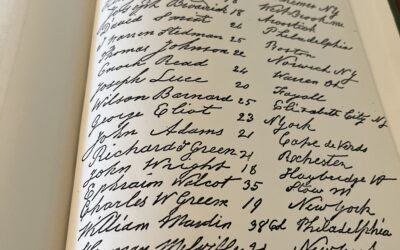 Broderick 18 Westbrook Me
David Smith 25 Philadelphia
J Warren Stedman 25 Boston
Thomas Johnson 22 Norwich NY
Enoch Read 24 Warren
Joseph Luce 20 Fayall
Wilson Barnard 25 Elizabeth City NJ
George Eliot 23 N York
John Adams 21 Cape de Verds
Richard T Green 21 Rochester
John Wright 18 Haybridge Vt
Ephraim Wilcot 35 Stow M
Charles W Green 19 New York
William Maslin 38 Philadelphia
Herman Melville New